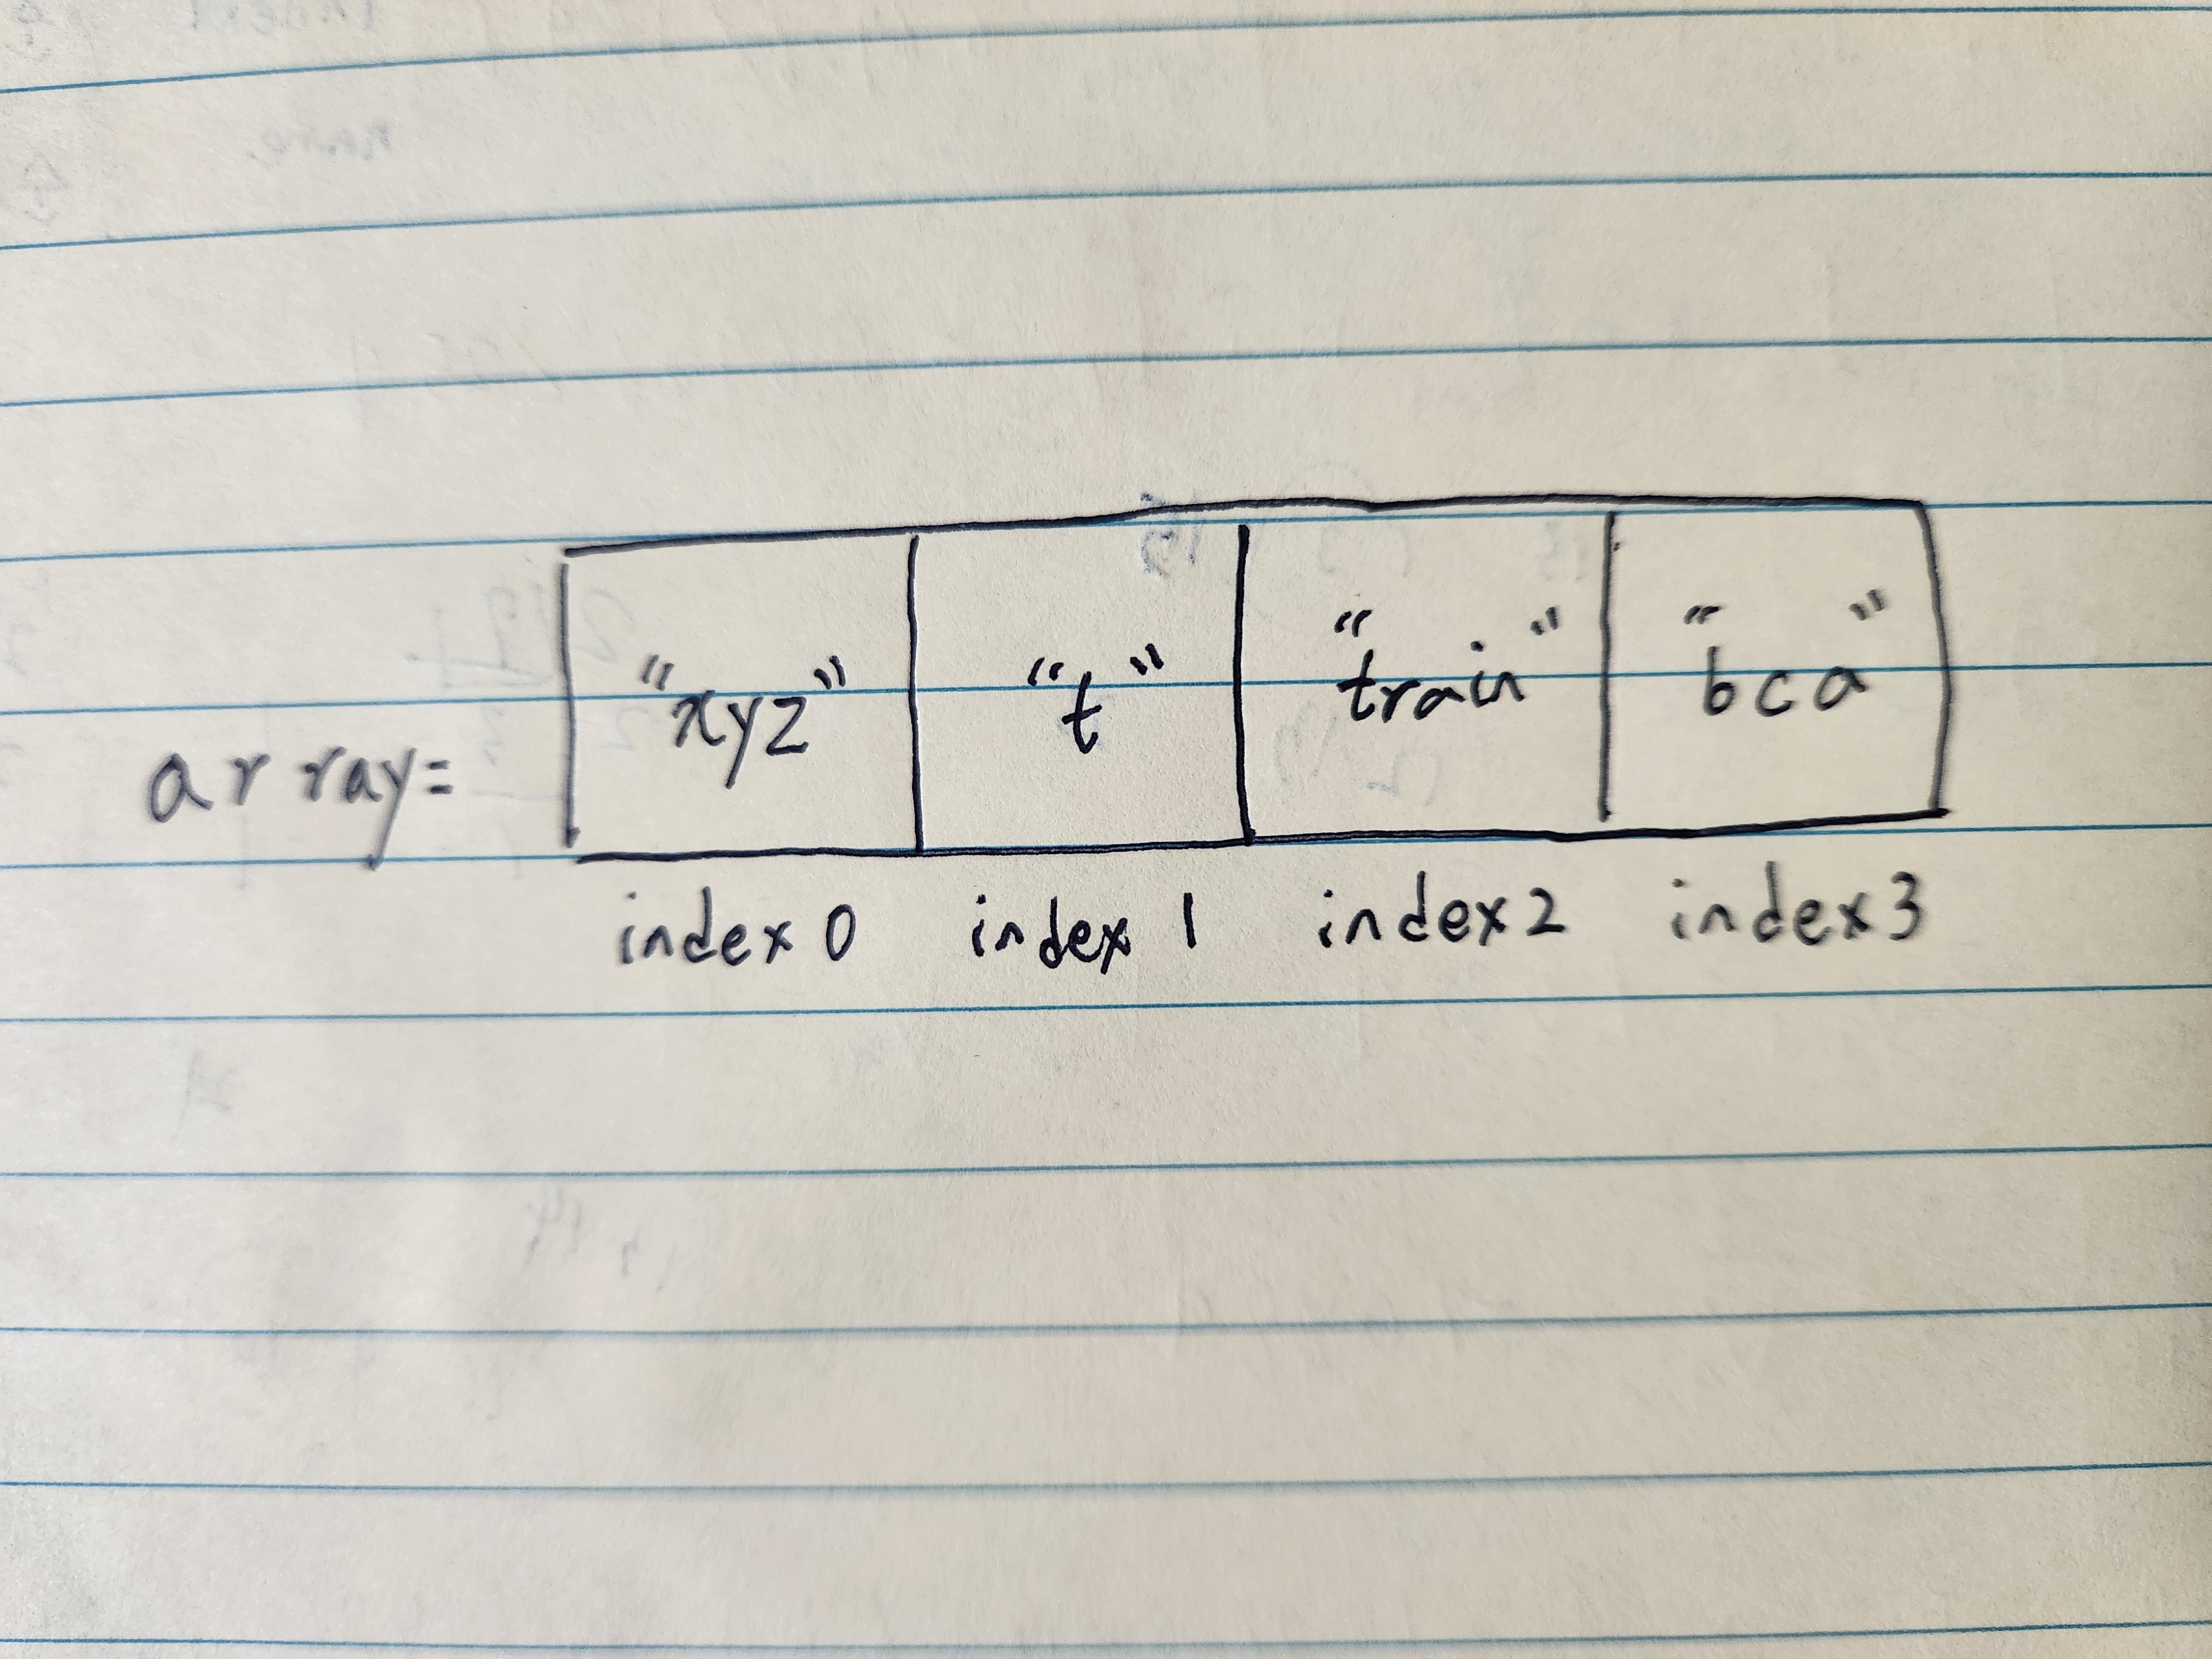 array= "xyz" "t" "train" "bca"
index 0 index 1 index 2 index 3